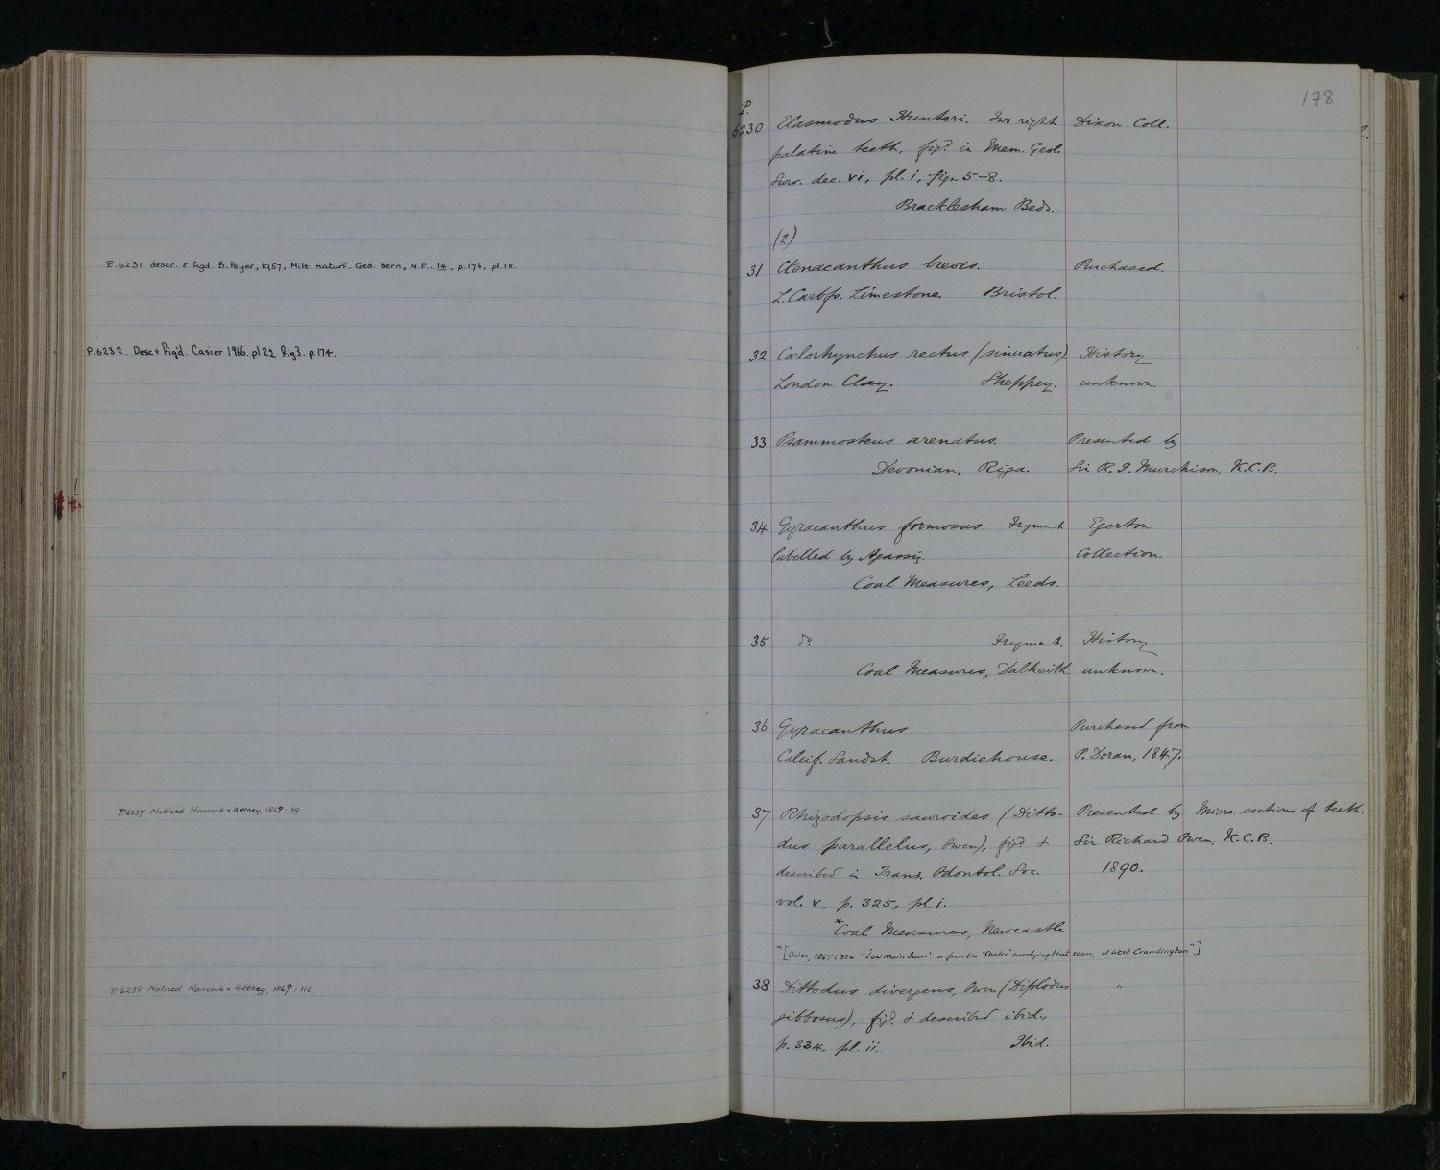 P.6231 descr. & figd. B. Peyer, 1957, Mitt naturf. Ges. Bern, N.F. 14, p.176, pl.ix.
P.6232. Desc & Fig'd. Casier 1966. pl 22 fig 3. p.174.
P6237 Noticed Hancock & Atthey, 1869.
P6238 Noticed Hancock & Atthey, 1869: 112.
178
P.
6230 Elasmodus Hunteri. Two right Dixon Coll.
palatine teeth, figd. in Mem. Geol.
Surv. dec. vi, pl. i, figs. 5-8.
Bracklesham Beds.
(2)
31 Ctenacanthus brevis. Purchased.
L. Carbfs. Limestone. Bristol.
32 Cœlorhynchus rectus (sinuatus) History
London Clay. Sheppey. unknown.
33 Psammosteus arenatus. Presented by
Devonian, Riga. Sir R. I. Murchison, K.C.B.
34 Gyracanthus formosus. Fragment Egerton
labelled by Agassiz. Collection.
Coal Measures, Leeds.
35 do. Fragment. History
Coal Measures, Dalkeith unknown.
36 Gyracanthus Purchased from
Calcif. Sandst. Burdiehouse. P. Doran, 1847.
37 Rhizodopsis sauroides (Ditto- Presented by Micro. section of teeth.
dus parallelus, Owen), figd. & Sir Richard Owen, K.C.B.
described in Trans. Odontol. Soc. 1890.
vol. v, p. 325, pl. i.
*Coal Measures, Newcastle
*[Owen, 1867: 'Low Main Seam' overlying that seam, at West Cramlington"]
38 Dittodus divergens, Owen (Diplodus "
gibbosus), figd. & described ibid.,
p. 334, pl. ii. Ibid.